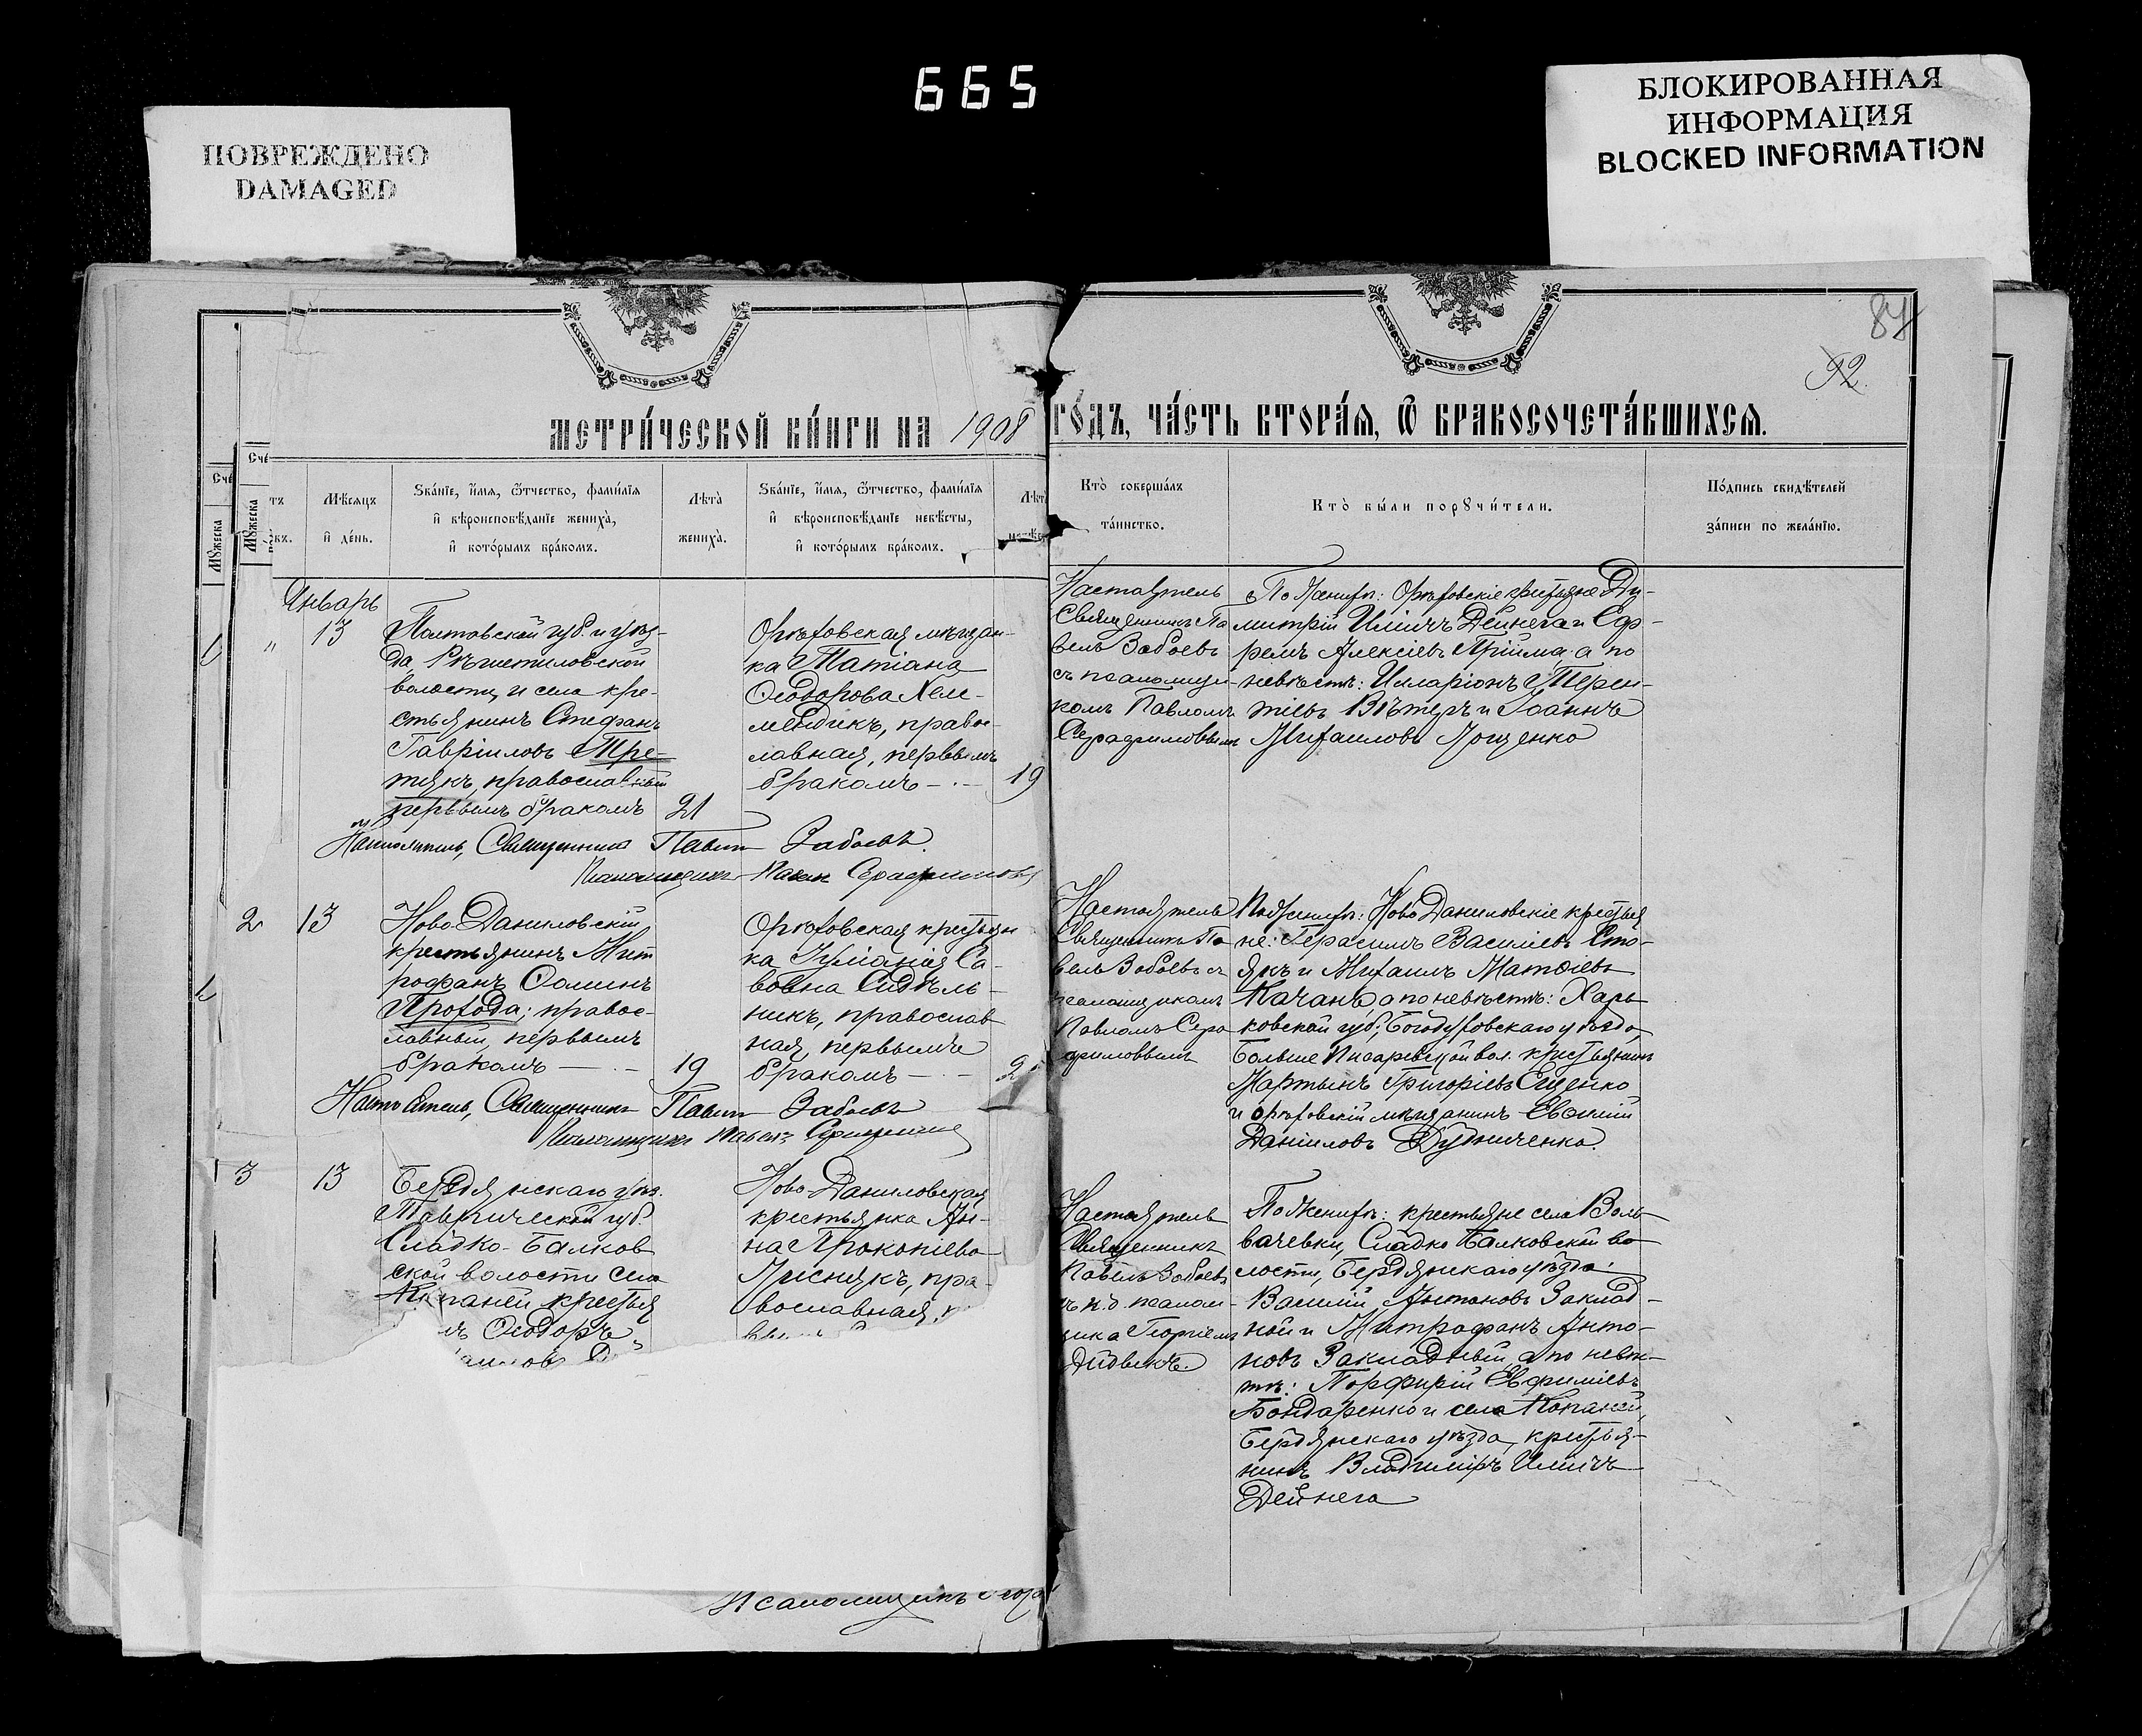 665
ПОВРЕЖДЕНО
DAMAGED
БЛОКИРОВАННАЯ
ИНФОРМАЦИЯ
BLOCKED INFORMATION
84
92.
МЕТРИ́ЧЕСКОЙ КНИ́ГИ НА 1908 ГО́ДЪ, ЧА́СТЬ ВТОРА́Я, Ѿ БРАКОСОЧЕТА́ВШИХСЯ.
Сче
Сче
Мꙋжеска
Мꙋжеска
Мѣсяцъ
и҆ де́нь.
Ѕва́нїе, и҆́мя, ѻ҆́тчество, фами́лїя
и҆ вѣроисповѣ́данїе жениха̀,
и҆ кото́рымъ бра́комъ.
Лѣта̀
жениха̀.
Ѕва́нїе, и҆́мя, ѻ҆́тчество, фами́лїя
и҆ вѣроисповѣ́данїе невѣ́сты,
и҆ кото́рымъ бра́комъ.
Кто̀ соверша́лъ
та́инство.
Кто̀ бы́ли порꙋчи́тели.
По́дпись свидѣ́телей
за́писи по жела́нїю.
Январь
1 " 13
Полтавской губ. и уѣз-
да, Рѣшетиловской
волости и села кре-
стьянинъ Стефанъ
Гавріиловъ Тре-
тякъ, православный
первымъ бракомъ
21
Орѣховская мѣщан-
ка Татіана
Ѳеодорова Хеле-
мендикъ, правос-
лавная, первымъ
бракомъ
19
Настоятель
Священникъ Па
велъ Забоевъ
съ псаломщи-
комъ Павломъ
Серафимовымъ
По женихѣ: Орѣховскіе крестьяне Ди-
митрій Иличъ Дейнега и Еф-
ремъ Алексіевъ Прійма а по
невѣстѣ: Илларіонъ Терен-
тіевъ Вѣтеръ и Іоаннъ
Михаиловъ Лященко
Настоятель, Священникъ Павелъ Забоевъ.
Псаломщикъ Павелъ Серафимовъ
2 13
Ново-Даниловскій
крестьянинъ Мит
рофанъ Ѳоминъ
Прохода; правос-
лавный, первымъ
бракомъ
19
Орѣховская крестьян
ка Іуліанія Са-
вовна Сидѣль-
никъ, православ
ная, первымъ
бракомъ
2
Настоятель
Священникъ Па
велъ Забоевъ съ
псаломщикомъ
Павломъ Сера
фимовымъ
По женихѣ: Ново Даниловскіе крестья
не: Герасимъ Василіевъ Сто-
якъ и Михаилъ Матѳіевъ
Качанъ, а по невѣстѣ: Харь
ковской губ., Богодуховскаго уѣзда,
Больше Писаревской вол. крестьянинъ
Мартынъ Григоріевъ Ященко
и орѣховскій мѣщанинъ Евѳимій
Даніиловъ Дудниченко.
Настоятель, Священникъ Павелъ Забоевъ
Псаломщикъ Павелъ Серафимовъ
3 13
Бердянскаго уѣз.
Таврической губ.
Сладко-Балков
ской волости села
Копаней крестья
нъ Ѳеодоръ
Ново-Даниловская
крестьянка Ан-
на Прокопіева
Лиснякъ, пра-
вославная,
Настоятель
Священникъ
Павелъ Забоевъ
съ и.д. псалом-
щика Георгіемъ
По женихѣ: крестьяне села Воль
вачевки, Сладко Балковской во
лости, Бердянскаго уѣзда:
Василій Антоновъ Заклад-
ной и Митрофанъ Анто-
новъ Закладный а по невѣ-
стѣ: Порфирій Евфиміевъ
Бондаренко и села Копаней,
Бердянскаго уѣзда, крестья-
нинъ Владиміръ Иличъ
Дейнега
Псаломщикъ